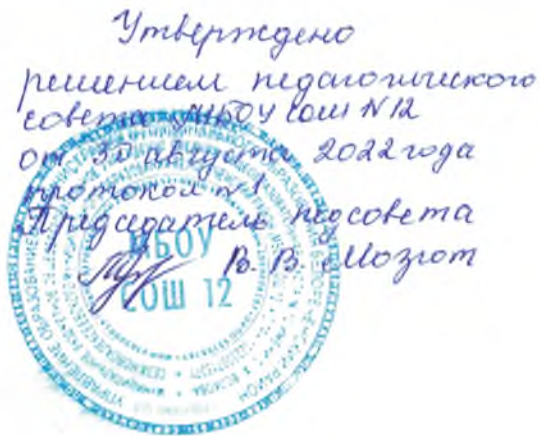 Утверждено
решением педагогического
совета МБОУ СОШ N12
от 30 августа 2022 года
протокол N1
Председатель педсовета
В. В. Мозгот
МБОУ
СОШ 12